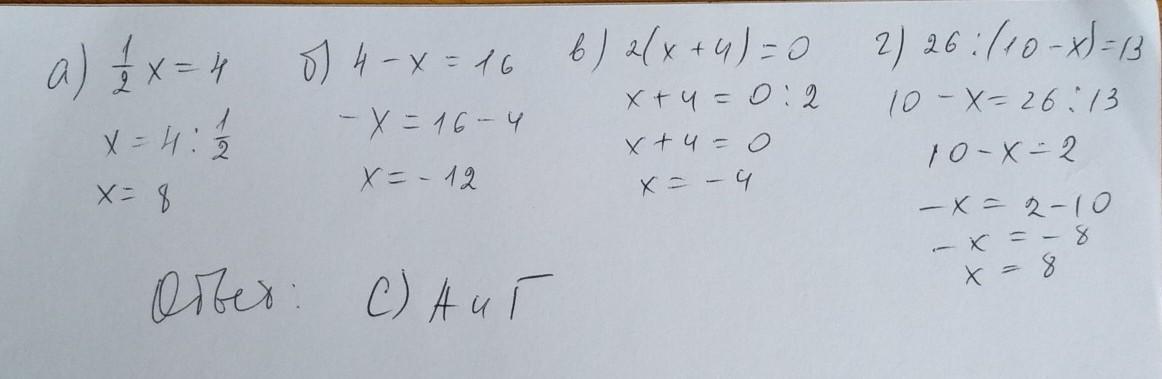 а) 1/2 x = 4
x = 4 : 1/2
x = 8
б) 4 - x = 16
-x = 16 - 4
x = -12
в) 2(x + 4) = 0
x + 4 = 0 : 2
x + 4 = 0
x = -4
г) 26 : (10 - x) = 13
10 - x = 26 : 13
10 - x = 2
-x = 2 - 10
-x = -8
x = 8
Ответ: С) А и Г